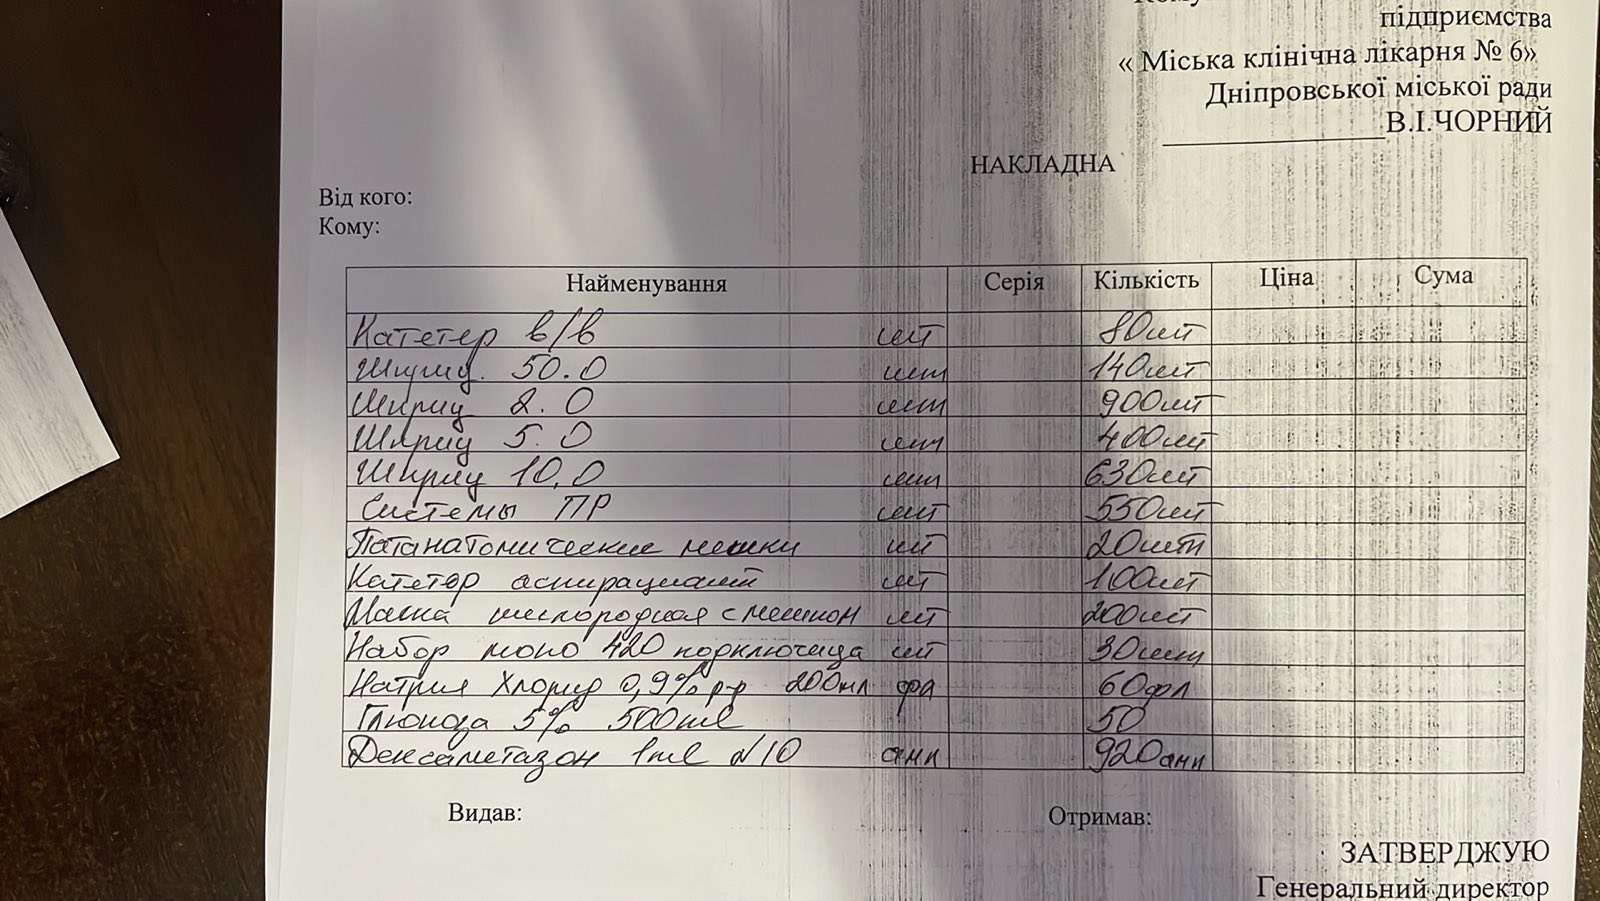 підприємства
« Міська клінічна лікарня № 6»
Дніпровської міської ради
В.І.ЧОРНИЙ
НАКЛАДНА
Від кого:
Кому:
Найменування Серія Кількість Ціна Сума
Катетер в/в шт 80шт
Шприц 50.0 шт 140шт
Шприц 2.0 шт 900шт
Шприц 5.0 шт 400шт
Шприц 10,0 шт 630шт
Системы ПР шт 550шт
Патанатомические мешки шт 20шт
Катетер аспирационный шт 100шт
Маска кислородная с мешком шт 200шт
Набор моно 420 подключица шт 30шт
Натрия Хлорид 0,9% р-р 200мл фл 60фл
Глюкоза 5% 500ml 50
Дексаметазон 1ml №10 амп 920амп
Видав: Отримав:
ЗАТВЕРДЖУЮ
Генеральний директор